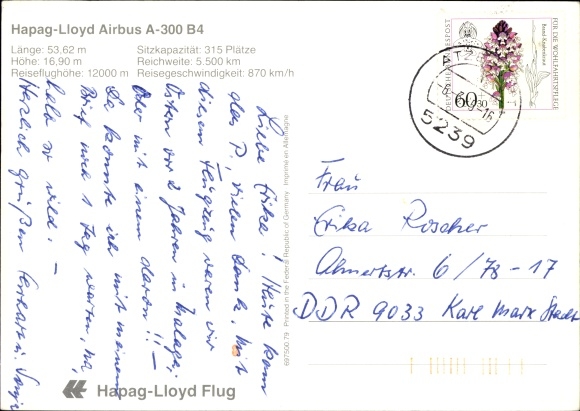 Hapag-Lloyd Airbus A-300 B4
Länge: 53,62 m Sitzkapazität: 315 Plätze
Höhe: 16,90 m Reichweite: 5.500 km
Reiseflughöhe: 12000 m Reisegeschwindigkeit: 870 km/h
Liebe Erika! Heute kam
das P., vielen Dank. Mit
diesem Flugzeug waren wir
Ostern vor 2 Jahren in Malaga,
oder mit einem davon!! —
Da konnte ich mit meinem
Brief noch 1 Tag warten, na,
bald so wild. —
Herzlich grüßen
Hapag-Lloyd Flug
697500.79 Printed in the Federal Republic of Germany Imprimé en Allemagne
DEUTSCHE BUNDESPOST
60+30
FÜR DIE WOHLFAHRTSPFLEGE
5239
Frau
Erika Roscher
Ahnertstr. 6/78-17
DDR 9033 Karl Marx Stadt